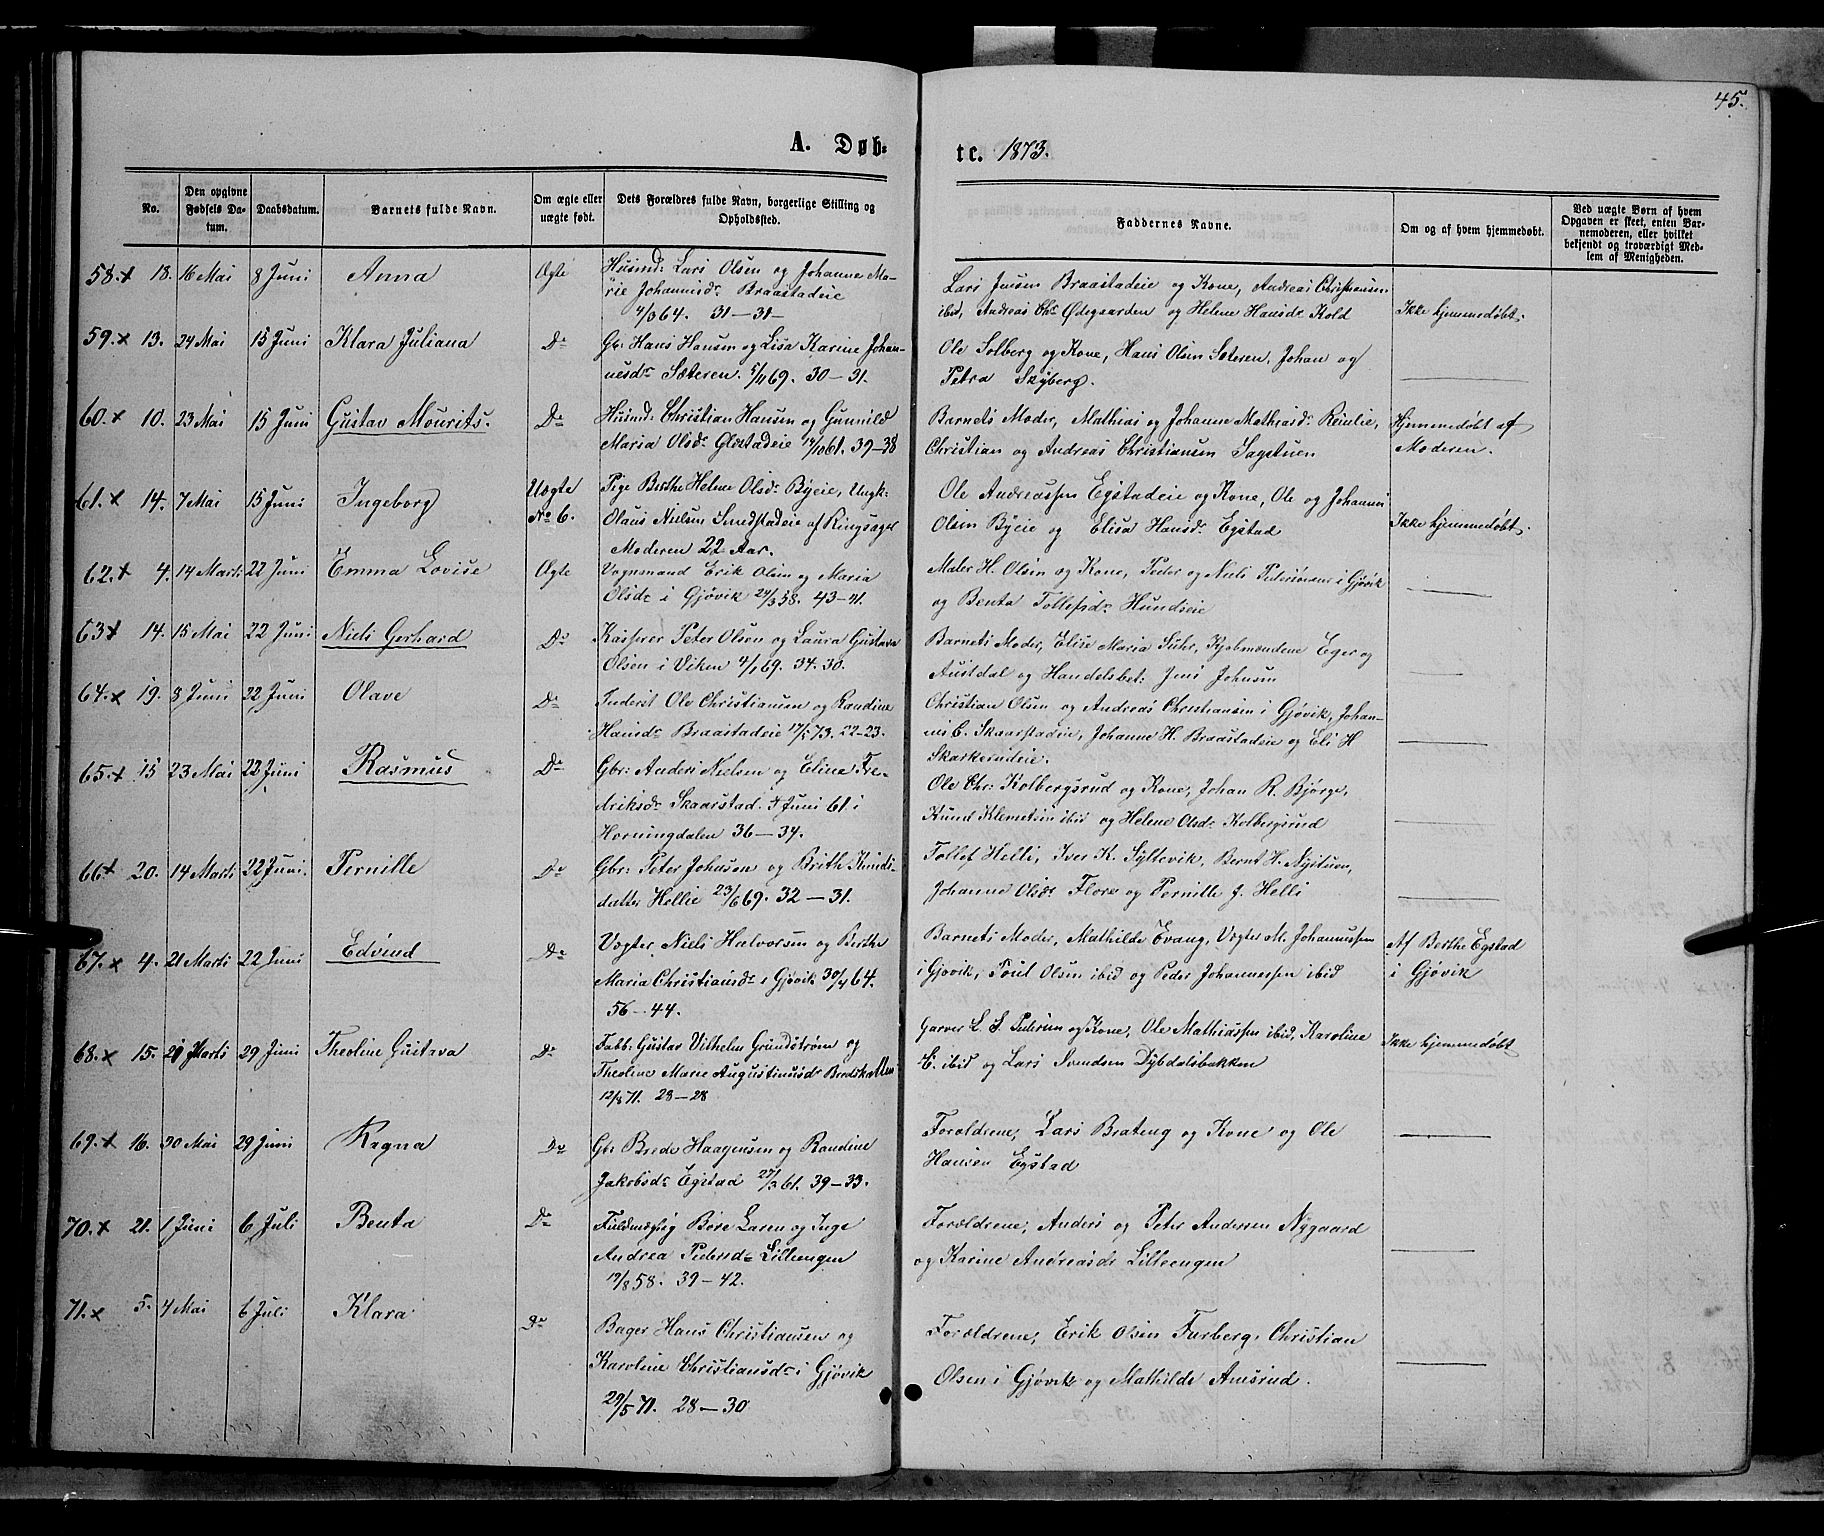 45.
A. Døb-
te. 1873.
No.
Den opgivne Fødsels Datum.
Daabsdatum.
Barnets fulde Navn.
Om ægte eller uægte født.
Dets Forældres fulde Navn, borgerlige Stilling og Opholdssted.
Faddernes Navne.
Om og af hvem hjemmedøbt.
Ved uægte Børn af hvem Opgaven er skeet, enten Barnemoderen, eller hvilket bekjendt og troværdigt Medlem af Menigheden.
58.x 18. 16 Mai 8 Juni Anna Ægte
Husmd: Lars Olsen og Johanne Ma-
rie Johannisdr Braastadeie
4/3 64. 31-31-
Lars Jensen Braastadeie og Kone, Andreas Christiansen
ibid, Andreas Chr. Ødegaarden og Helene Hansdr Kold
Ikke hjemmedøbt.
59.x 13. 24 Mai 15 Juni Klara Juliana Do
Gbr: Hans Hansen og Lisa Karine Johan-
nesdr Sæteren. 5/11 69. 30-31.
Ole Solberg og Kone, Hans Olsen Sæteren. Johan og
Petra Skyberg.
60.x 10. 23 Mai 15 Juni Gustav Mourits. Do
Husmd: Christian Hansen og Gunnild
Maria Olsdr Glæstadeie 14/10 61. 39-38
Barnets Moder, Mathias og Johanne Mathiasdr Reinlie,
Christian og Andreas Christiansen Sagstuen
Hjemmedøbt af
Moderen.
61.x 14. 7 Mai 15 Juni Ingeborg Uægte
No 6.
Pige Berthe Helene Olsdr Byeie, Ungk:
Olaus Nielsen Smedstadeie af Ringsager
Moderen 22 Aar.
Ole Andreassen Egstadeie og Kone, Ole og Johannes
Olsen Byeie og Elisa Hansdr Egstad
Ikke hjemmedøbt.
62.x 4. 14 Marts 22 Juni Emma Lovise Ægte
Vognmand Erik Olsen og Maria
Olsdr i Gjøvik 29/3 58. 43-41.
Maler H. Olsen og Kone, Peder og Niels Pedersønner i Gjøvik
og Benta Tollefsdr Hundseie
63x 14. 15 Mai 22 Juni Niels Gerhard Do
Kasserer Peter Olsen og Laura Gustava
Olsen i Viken 4/1 69. 34. 30.
Barnets Moder, Elise Maria Suhr, Kjøbmændene Eger og
Austdal og Handelsbet: Jens Johnsen
64.x 19. 8 Juni 22 Juni Olave Do
Inderst Ole Christiansen og Randine
Hansdr Braastadeie 17/5 73. 22-23.
Christian Olsen og Andreas Christiansen i Gjøvik, Johan-
nes C. Skaarstadeie, Johanne H. Braastadeie og Eli H
Skarkerudeie.
65.x 15 23 Mai 22 Juni Rasmus Do
Gbr: Anders Nielsen og Elina Fre-
driksdr Skaarstad. 5 Juni 61. i
Horningdalen 36-34.
Ole Chr: Kolbergsrud og Kone, Johan R. Bjørge,
Knud Klemetsen ibid og Helene Olsdr Kolbergsrud
66x 20. 14 Marts 22 Juni. Pernille Do
Gbr: Peter Johnsen og Brith Knuds-
datter Hellie 23/6 69. 32-31.
Tollef Helli, Iver K. Syltevik, Bernt H. Nystuen,
Johanne Olsdr Flore og Pernille J. Helli
67.x 4. 21 Marts 22 Juni Edvind Do
Vægter Niels Halvorsen og Berthe
Maria Christiansdr i Gjøvik 30/4 64.
56-44.
Barnets Moder, Mathilde Evang, Vægter M. Johannessen
i Gjøvik, Poul Olsen ibid og Peder Johannessen ibid
Af Berthe Egstad
i Gjøvik
68.x 15. 21 Marts 29 Juni Theoline Gustava Do
Fabb. Gustav Vilhelm Grundstrøm og
Theoline Marie Augustinusdr Bredskallen
12/8 71. 28-28
Garver L. S. Pedersen og Kone, Ole Mathiassen ibid, Karoline
E. ibid og Lars Svendsen Dybdalsbakken
Ikke hjemmedøbt
69.x 16. 30 Mai 29 Juni Ragna Do
Gbr Brede Haagensen og Randine
Jakobsdr Egstad 27/3 61. 39-33.
Forældrene, Lars Brateng og Kone og Ole
Hansen Egstad
70.x 21. 1 Juni 6 Juli Benta Do
Fuldmægtig Bore Laren og Inge
Andrea Pedersdr Lilleengen
19/8 58. 39-42.
Forældrene, Anders og Peter Andersen Nygaard
og Karine Andreasdr Lilleengen
71.x 5. 4 Mai 6 Juli Klara Do
Bager Hans Christiansen og
Karoline Christiansdr i Gjøvik
29/5 71. 28-30
Forældrene, Erik Olsen Furberg, Christian
Olsen i Gjøvik og Mathilde Amsrud.